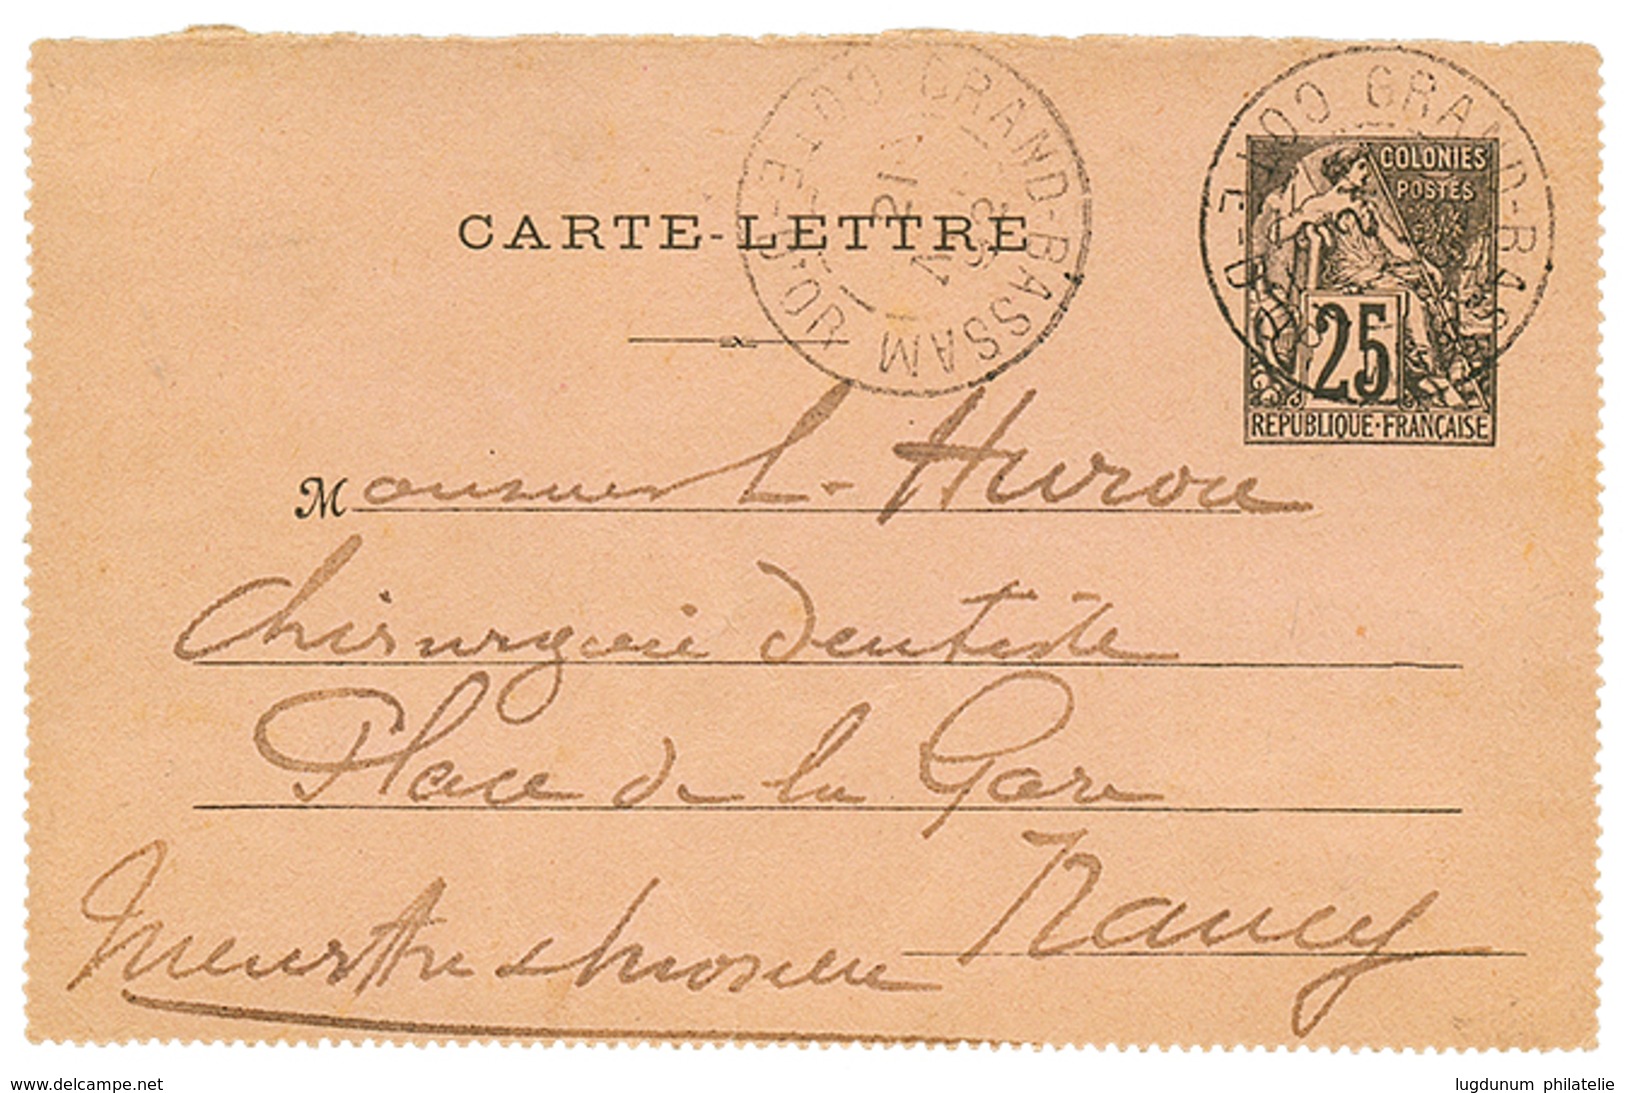 GRAND-BASSAM COTE-D'OR
GRAND-BASS COTE-D'OR
COLONIES
POSTES
CARTE-LETTRE
25
REPUBLIQUE·FRANÇAISE
Monsieur L. Huron
Chirurgien dentiste
Place de la Gare
Nancy
Meurthe & Moselle
www.delcampe.net
lugdunum philatelie